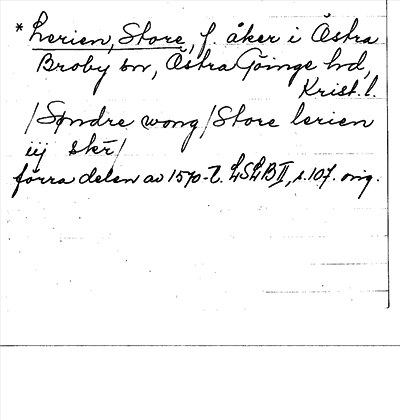 * Lerien, Store, f. åker i Östra
Broby sn, Östra Göinge hd,
Krist. l.
/Søndre wong/Store lerien
iij skr/
förra delen av 1570-t. LSLB II, s. 107. orig.